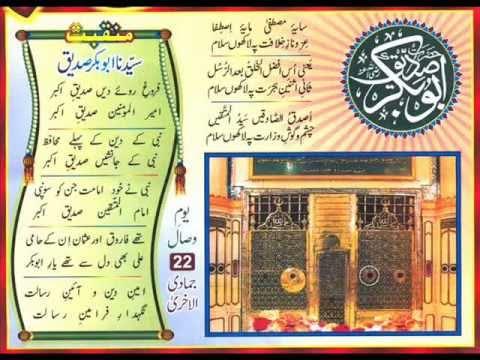 منقبت
سیّدنا ابوبکر صدیق
فروغِ روئے دیں صدیقِ اکبر
امیر المؤمنین صدیقِ اکبر
نبی کے دین کے پہلے محافظ
نبی کے جانشیں صدیقِ اکبر
نبی نے خود امامت جن کو سونپی
امام المتقین صدیقِ اکبر
تھے فاروق اور عثمان ان کے حامی
علی بھی دل سے تھے یارِ ابوبکر
امینِ دین و آئینِ رسالت
نگہدارِ فرامینِ رسالت
سایۂ مصطفیٰ مایۂ اِصطفا
عِزّ و نازِ خلافت پہ لاکھوں سلام
یعنی اُس افضل الخلق بعد الرُّسل
ثانی اثنینِ ہجرت پہ لاکھوں سلام
اَصدق الصّادقیں سیّد المتّقیں
چشم و گوشِ وزارت پہ لاکھوں سلام
حضرت
ابوبکر صدیق
یوم
وصال
22
جمادی
الاخریٰ